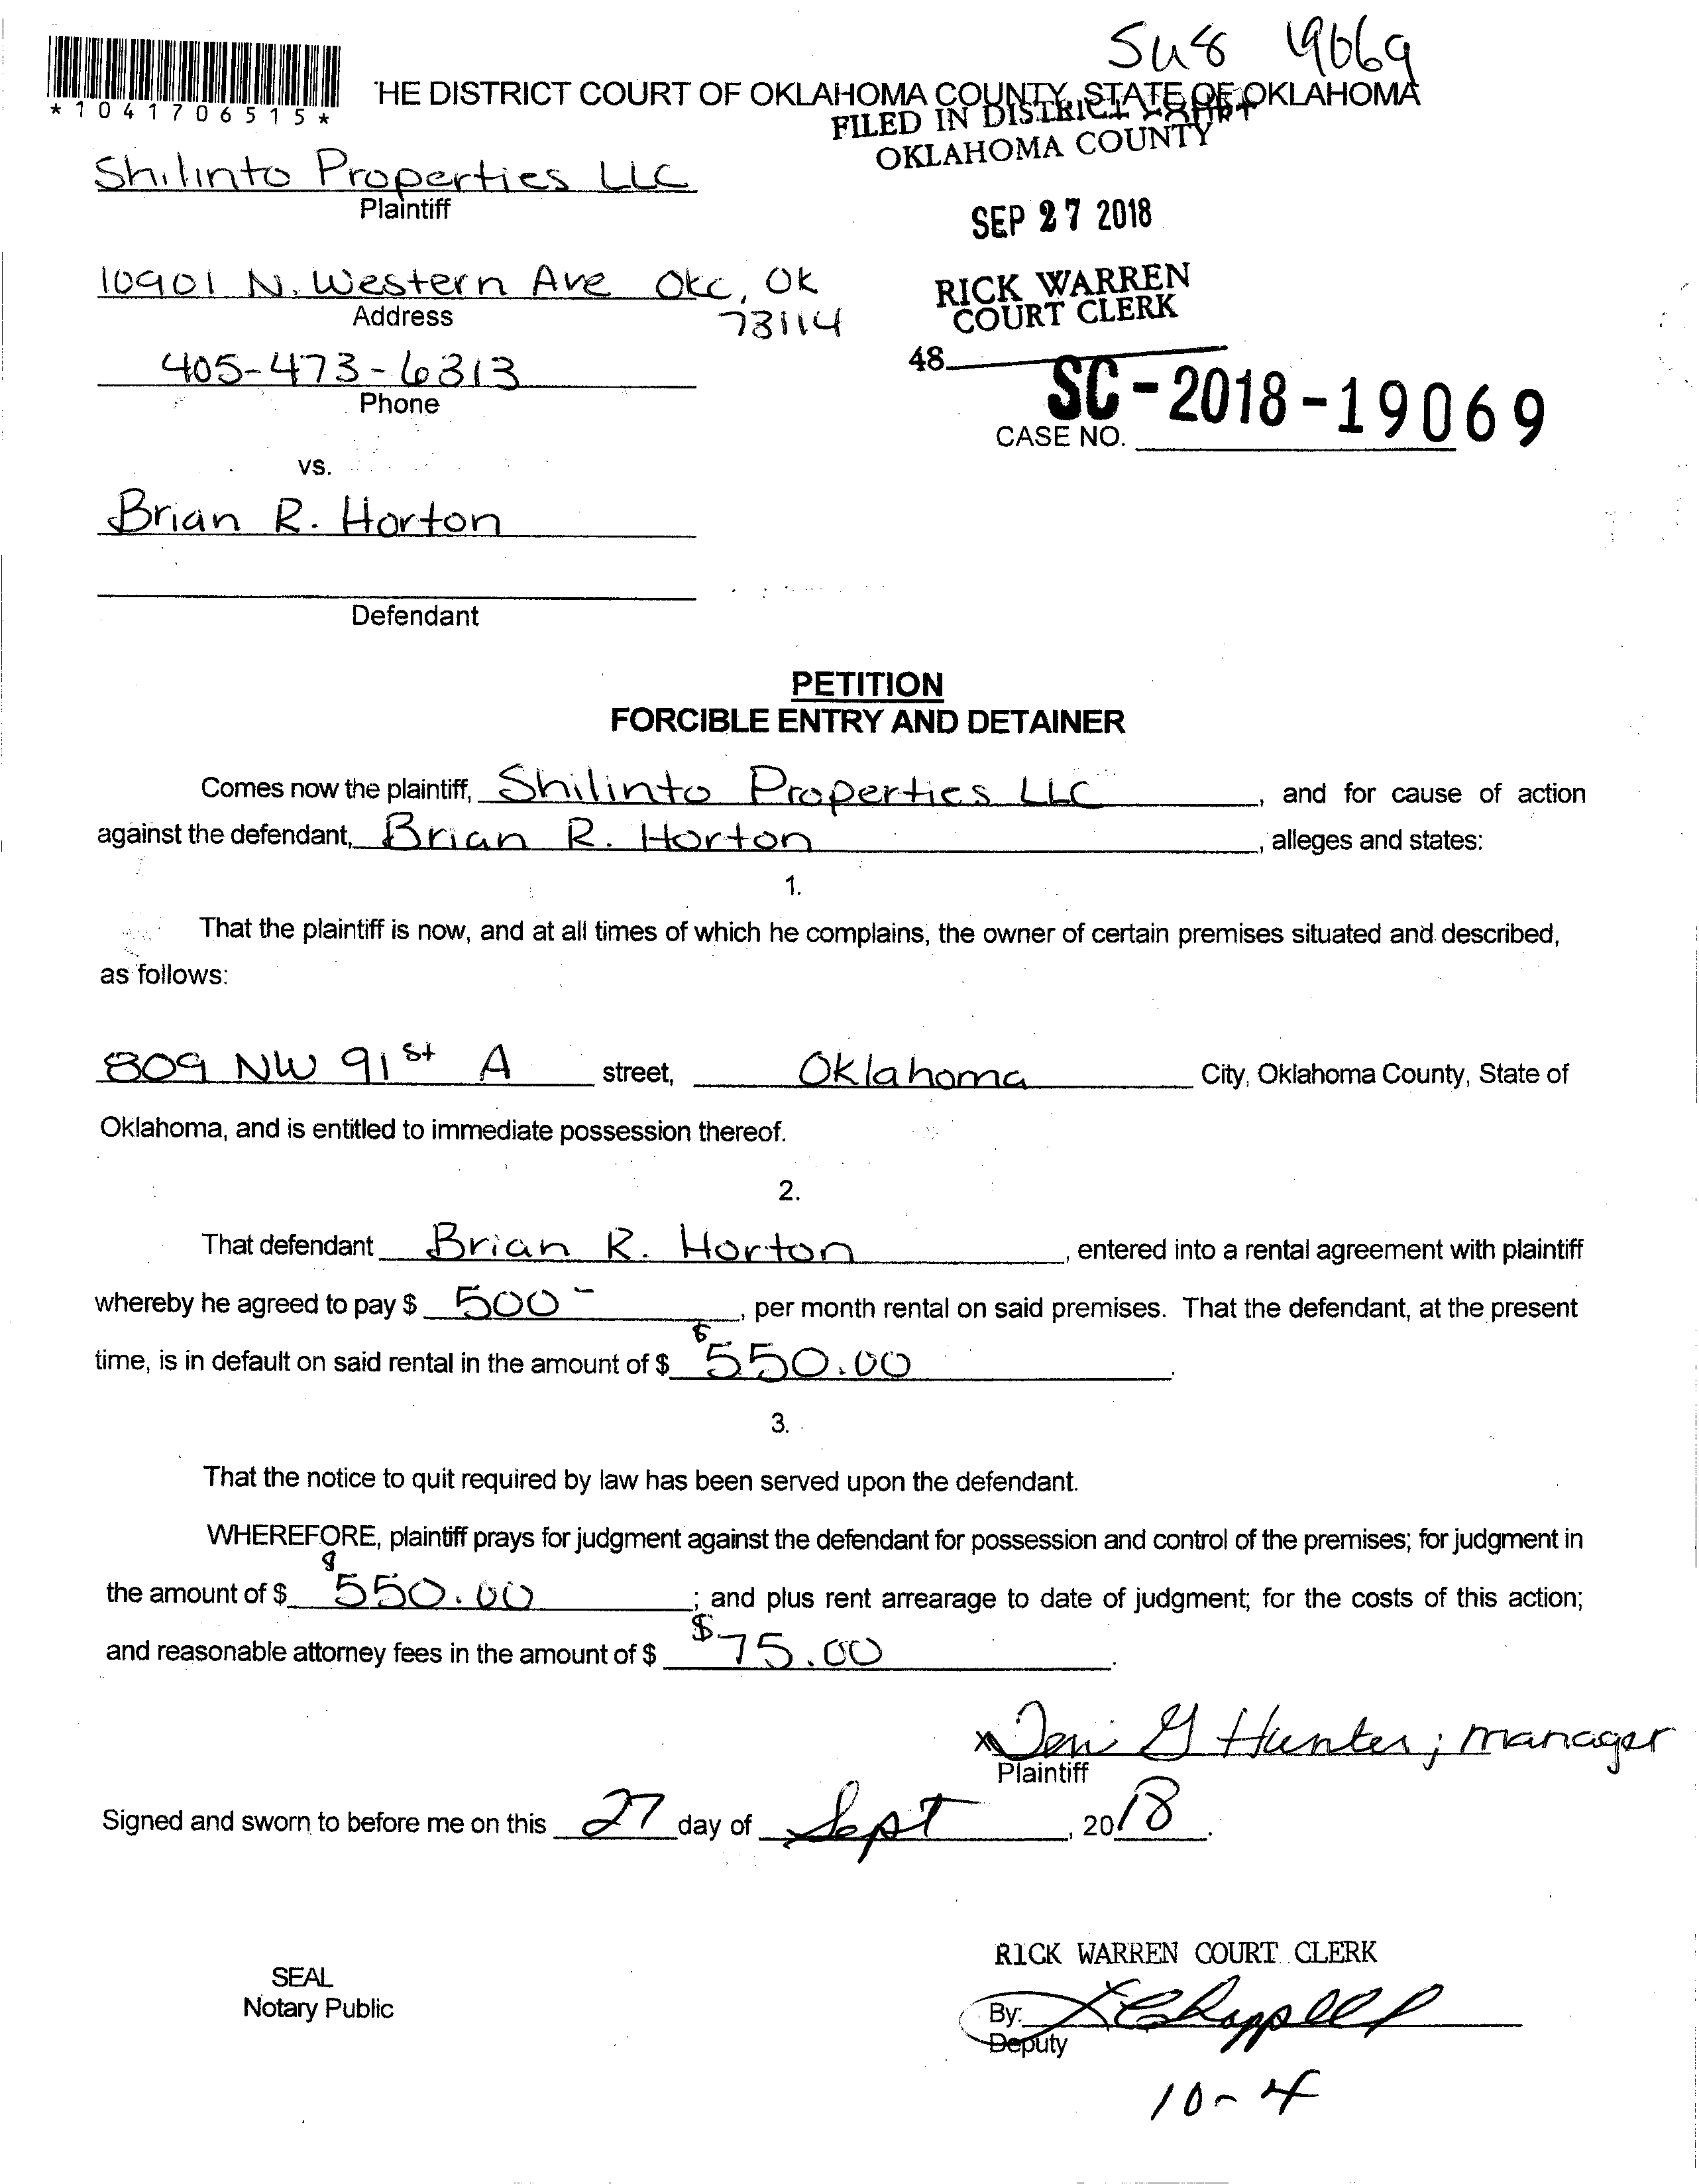 SU8 19669
*1041706515*
HE DISTRICT COURT OF OKLAHOMA COUNTY, STATE OF OKLAHOMA
FILED IN DISTRICT COURT
OKLAHOMA COUNTY
Shilinto Properties LLC
Plaintiff
SEP 27 2018
10901 N. Western Ave Okc, OK
73114
Address
RICK WARREN
COURT CLERK
405-473-6313
Phone
48
SC-2018-19069
CASE NO.
vs.
Brian R. Horton
Defendant
PETITION
FORCIBLE ENTRY AND DETAINER
Comes now the plaintiff, Shilinto Properties LLC, and for cause of action
against the defendant, Brian R. Horton, alleges and states:
1.
That the plaintiff is now, and at all times of which he complains, the owner of certain premises situated and described,
as follows:
809 NW 91st A street, Oklahoma City, Oklahoma County, State of
Oklahoma, and is entitled to immediate possession thereof.
2.
That defendant Brian R. Horton, entered into a rental agreement with plaintiff
whereby he agreed to pay $ 500-, per month rental on said premises. That the defendant, at the present
time, is in default on said rental in the amount of $ $550.00.
3.
That the notice to quit required by law has been served upon the defendant.
WHEREFORE, plaintiff prays for judgment against the defendant for possession and control of the premises; for judgment in
the amount of $ $550.00; and plus rent arrearage to date of judgment; for the costs of this action;
and reasonable attorney fees in the amount of $ $75.00.
x G Hunter; manager
Plaintiff
Signed and sworn to before me on this 27 day of Sept, 2018.
RICK WARREN COURT CLERK
SEAL
Notary Public
By:
Deputy
10-4